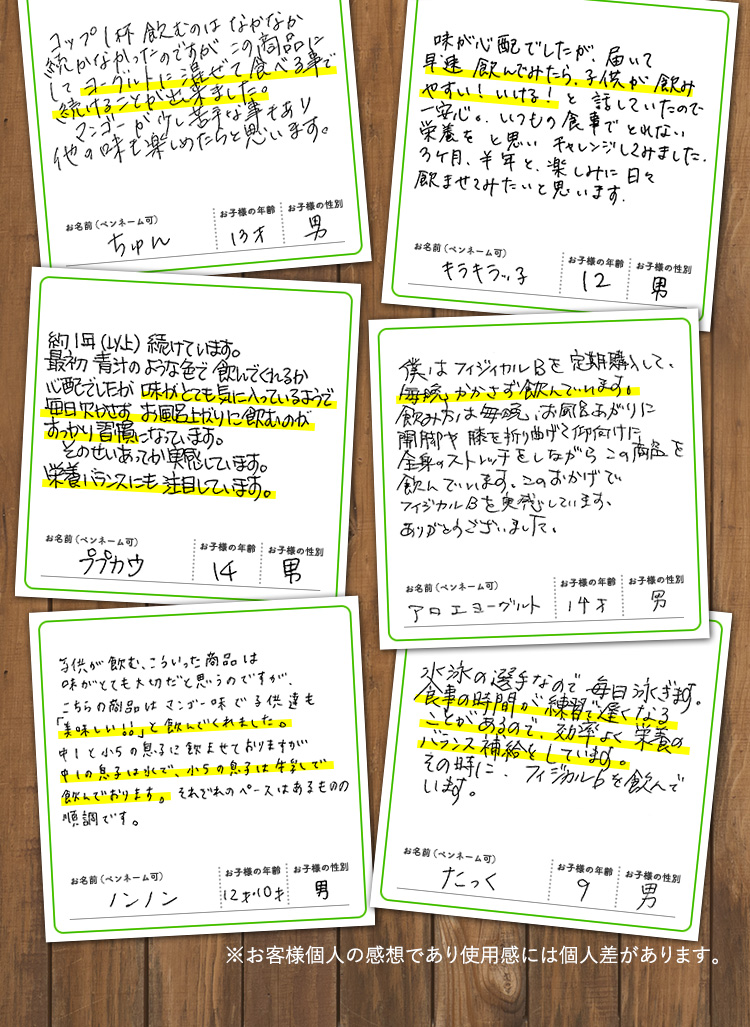 コップ1杯 飲むのは なかなか
続かなかったのですが この商品に
して ヨーグルトに混ぜて 食べる事で
続けることが出来ました。
マンゴーが少し苦手な事もあり
他の味も楽しめたらと思います。
お名前(ペンネーム可) お子様の年齢 お子様の性別
ちゅん 13才 男
味が心配でしたが、届いて
早速 飲んでみたら、子供が 飲み
やすい!いける!と 話していたので
一安心。いつもの食事で とれない
栄養を と思い チャレンジしてみました.
3ケ月、半年と、楽しみに 日々
飲ませてみたいと思います.
お名前(ペンネーム可) お子様の年齢 お子様の性別
キラキラッ子 12 男
約1年(以上) 続けています。
最初 青汁のような色で 飲んでくれるか
心配でしたが 味がとても気に入っているようで
毎日欠かせず お風呂上がりに飲むのが
すっかり習慣になっています。
そのせいあってか実感しています。
栄養バランスにも 注目しています。
お名前(ペンネーム可) お子様の年齢 お子様の性別
ププカウ 14 男
僕は フィジカルBを 定期購入して、
毎晩、かかさず飲んでいます。
飲み方は 毎晩、お風呂あがりに
開脚や 膝を折り曲げて仰向けに
全身のストレッチをしながら この商品を
飲んでいます。このおかげで
フィジカルBを実感しています、
ありがとうございました。
お名前(ペンネーム可) お子様の年齢 お子様の性別
アロエヨーグルト 14才 男
子供が飲む、こういった商品は
味がとても大切だと思うのですが、
こちらの商品は マンゴー味で子供達も
「美味しい!!」と飲んでくれました。
中1と小5の息子に飲ませておりますが
中1の息子は水で、小5の息子は牛乳で
飲んでおります。それぞれのペースはあるものの
順調です。
お名前(ペンネーム可) お子様の年齢 お子様の性別
ノンノン 12才10才 男
水泳の選手なので 毎日泳ぎます。
食事の時間が 練習で遅くなる
ことがあるので、効率よく栄養の
バランス補給をしています。
その時に、フィジカルbを飲んで
います。
お名前(ペンネーム可) お子様の年齢 お子様の性別
たっく 9 男
※お客様個人の感想であり使用感には個人差があります。